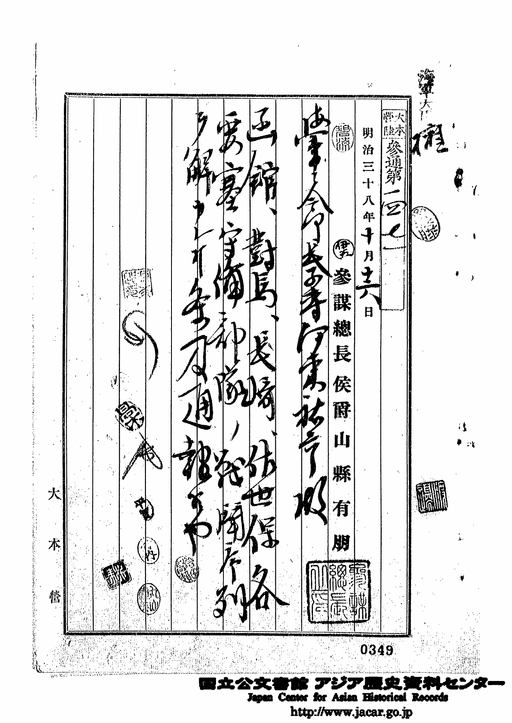 大本營陸
參通第
明治三十八年十月十六日
參謀總長侯爵山縣有朋
海軍々令部長子爵伊東祐亨殿
函館、對馬、長崎、佐世保各
要塞守備部隊ノ戰鬪序列
ヲ解カレ候条及通報候也
大本營
0349
国立公文書館 アジア歴史資料センター
Japan Center for Asian Historical Records
http://www.jacar.go.jp